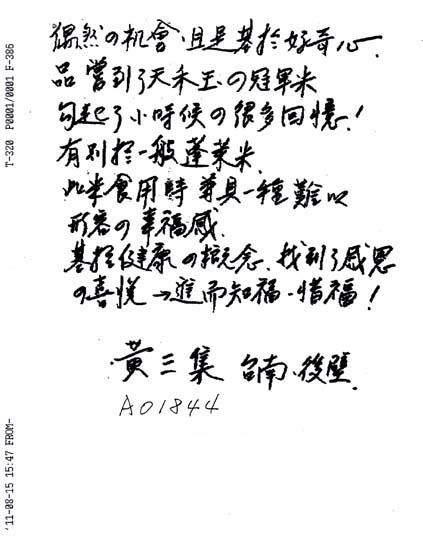 偶然の机會，且是基於好奇心．
品嘗到了天禾玉の冠軍米
勾起了小時候の很多回憶！
有別於一般蓬萊米．
此米食用時 尊具一種難以
形容の幸福感．
基於健康の概念．找到了感恩
の喜悅→進而知福．惜福！
黃三集 台南．後壁．
A01844
'11-08-15 15:47 FROM-
T-320 P0001/0001 F-386